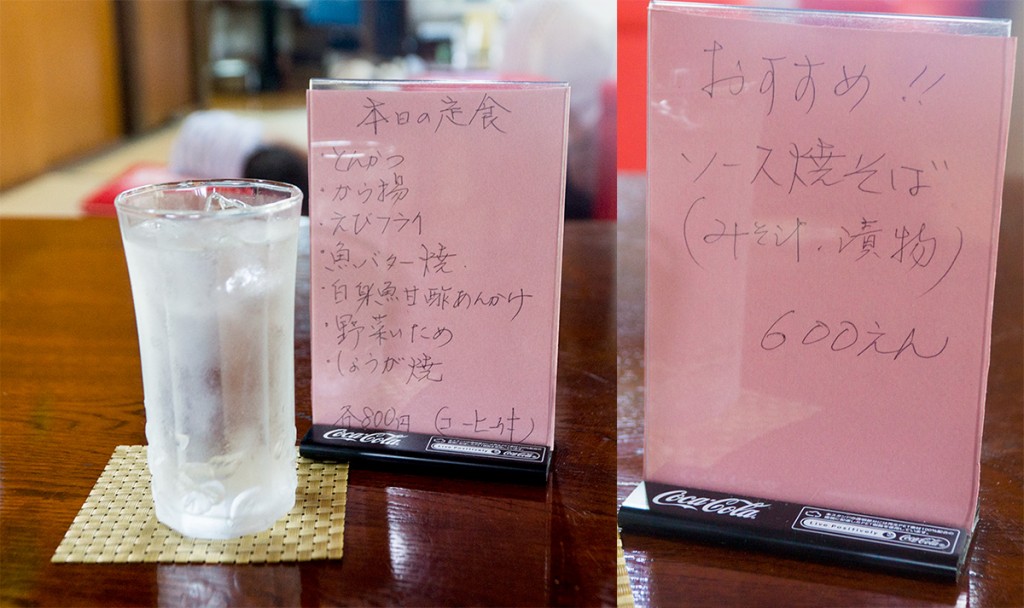 本日の定食
・とんかつ
・から揚
・えびフライ
・魚バター焼
・白身魚甘酢あんかけ
・野菜いため
・しょうが焼
各800円(コーヒー付)
Coca-Cola
Live Positively
Coca-Cola
おすすめ!!
ソース焼そば
(みそ汁、漬物)
600えん
Coca-Cola
Live Positively
Coca-Cola